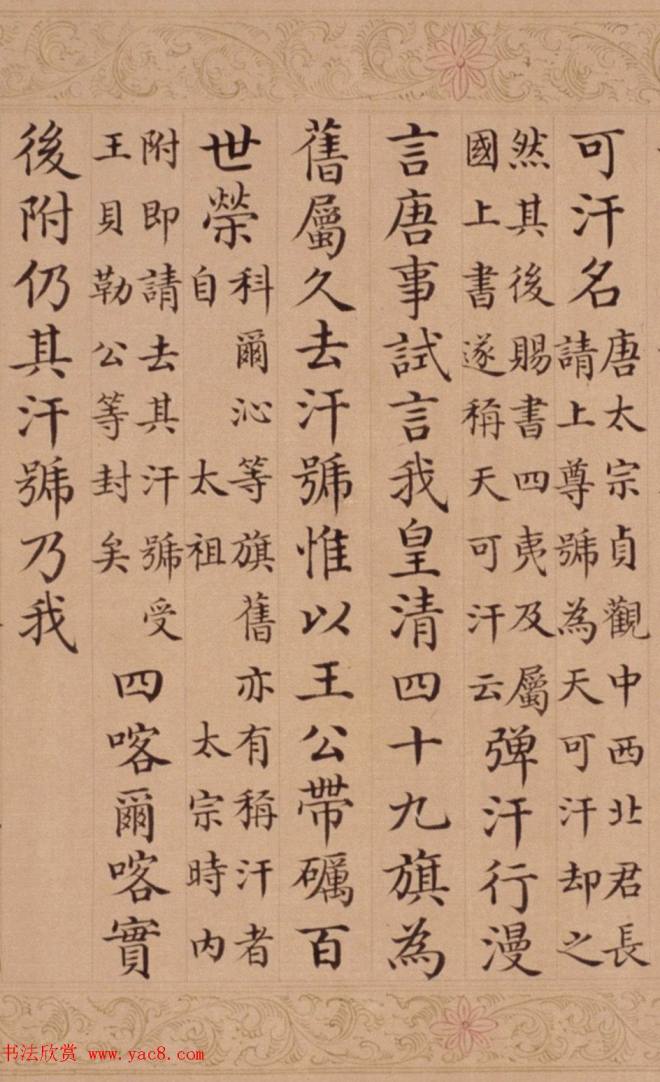 可汗名唐太宗貞觀中西北君長請上尊號為天可汗却之
然其後賜書四夷及屬國上書遂稱天可汗云彈汗行漫
言唐事試言我皇清四十九旗為
舊屬久去汗號惟以王公帶礪百
世榮科爾沁等旗舊亦有稱汗者自太祖太宗時內
附即請去其汗號受王貝勒公等封矣四喀爾喀實
後附仍其汗號乃我
书法欣赏 www.yac8.com